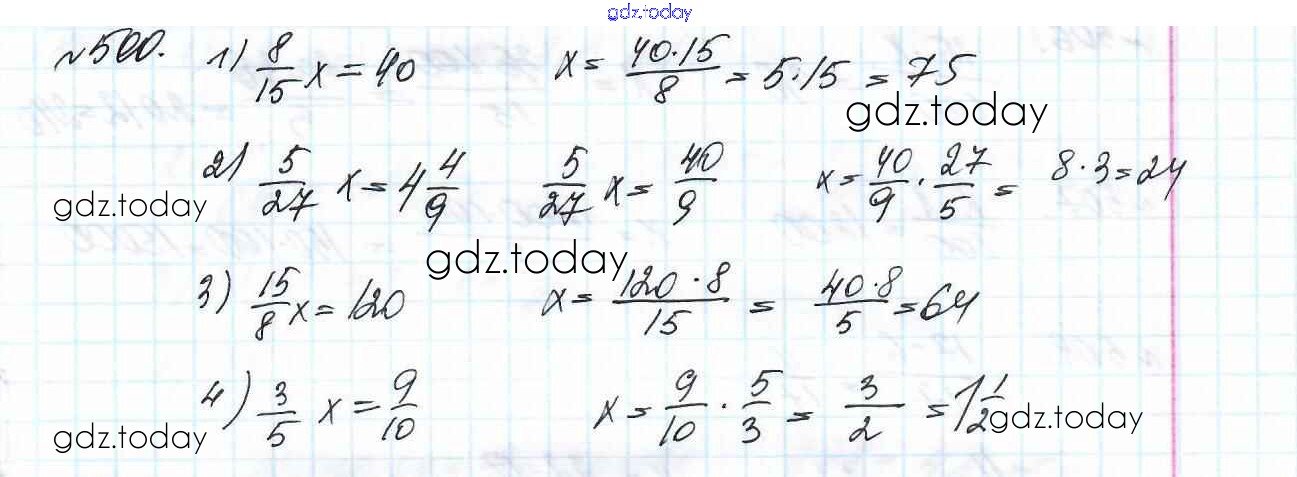 gdz.today
№500. 1) 8/15 x = 40 x = 40·15/8 = 5·15 = 75
gdz.today
2) 5/27 x = 4 4/9 5/27 x = 40/9 x = 40/9 · 27/5 = 8·3=24
gdz.today
gdz.today
3) 15/8 x = 120 x = 120·8/15 = 40·8/5 = 64
4) 3/5 x = 9/10 x = 9/10 · 5/3 = 3/2 = 1 1/2
gdz.today gdz.today